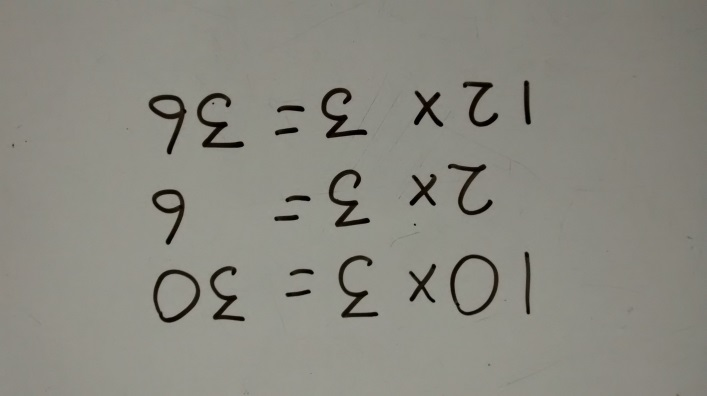 10 x 3 = 30
2 x 3 = 6
12 x 3 = 36